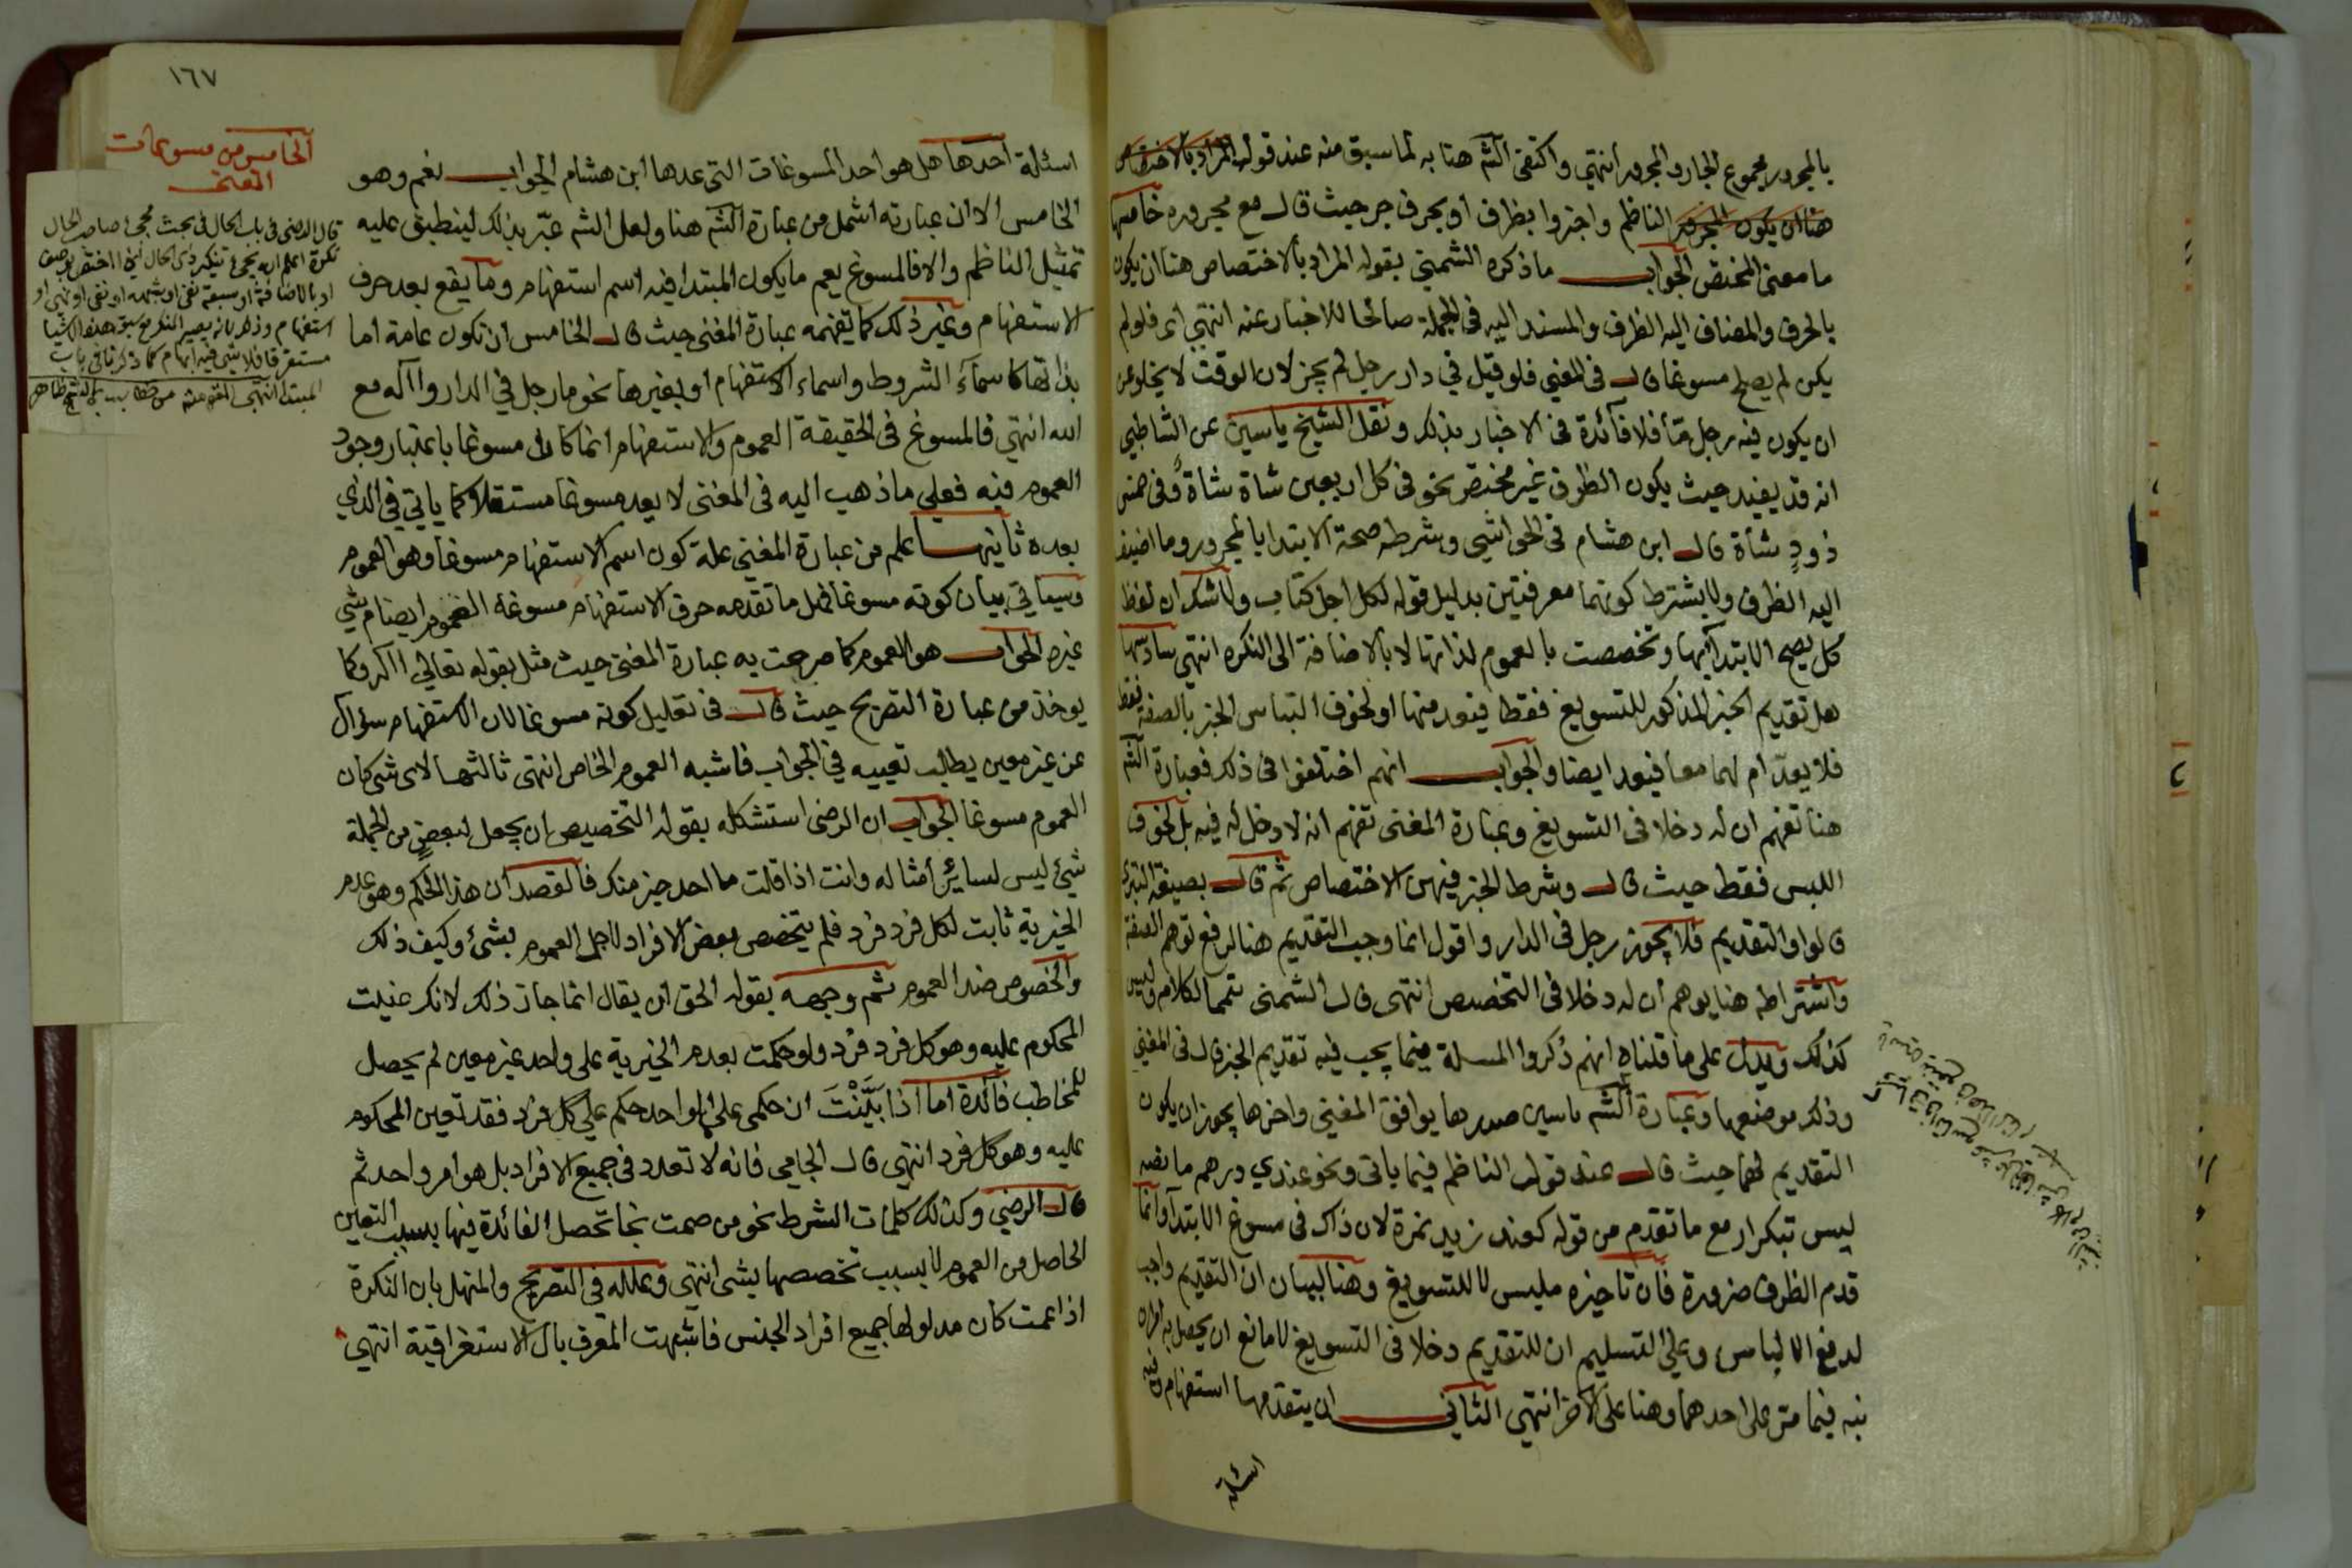 بالمجرور مجموع الجار والمجرور انتهي واكتفى الشم هنا به لما سبق منه عند قوله المراد بالاختصاص
هنا ان يكون المجرور الناظم واجتزوا بظرف او بحرف جر حيث قال مع مجروره خامسها
ما معنى المختص الجواب ما ذكره الشمني بقوله المراد بالاختصاص هنا ان يكون
بالحرف والمضاف اليه الظرف والمسند اليه في الجملة صالحا للاخبار عنه انتهي اى فلو لم
يكن لم يصلح مسوغا قال في المغني فلو قيل في دار رجل لم يجز لان الوقت لا يخلو عن
ان يكون فيه رجل ما فلا فائدة في الاخبار بذلك ونقل الشيخ ياسين عن الشاطبي
انه قد يفيد حيث يكون الظرف غير مختص نحو في كل اربعين شاة شاة وفي خمس
ذود شاة قال ابن هشام في الحواشي وشرطه صحة الابتدا بالمجرور وما اضيف
اليه الظرف ولا يشترط كونهما معرفتين بدليل قوله لكل اجل كتاب ولا شك ان لفظ
كل يصح الابتدا بها وتخصصت بالعموم لذاتها لا بالاضافة الى النكره انتهى سادسها
هل تقديم الخبر المذكور للتسويغ فقط فيعد منها او لخوف التباس الخبر بالصفة فقط
فلا يعد ام لهما معا فيعد ايضا والجواب انهم اختلفوا في ذلك فعبارة الشم
هنا تفهم ان له دخلا في التسويغ وعبارة المغنى تفهم انه لا دخل له فيه بل لخوف
اللبس فقط حيث قال وشرط الخبر فيهن الاختصاص ثم قال بصيغة التبرى
قالوا والتقديم فلا يجوز رجل في الدار واقول انما وجب التقديم هنا لرفع توهم الصفة
واشتراطه هنا يوهم ان له دخلا في التخصيص انتهى قال الشمنى تتمما لكلامه وليس
كذلك ويدل على ما قلناه انهم ذكروا المسلة فيما يجب فيه تقديم الخبر قال في المغني
وذلك موضعها وعبارة الشم ياسين صدرها يوافق المغني واخرها يجوز ان يكون
التقديم لهما حيث قال عند قول الناظم فيما ياتي ونحو عندي درهم ما نصه
ليس تبكرار مع ما تقدم من قوله كعند زيد نمرة لان ذاك في مسوغ الابتدا وانما
قدم الظرف ضرورة فان تاخيره ملبس لا للتسويغ وهنا لبيان ان التقديم واجب
لدفع الالباس وعلي التسليم ان للتقديم دخلا في التسويغ لا مانع ان يحصل به امران
نبه فيما مر على احدهما وهنا على الاخر انتهي الثاني ان يتقدمها استفهام وفيه
اسئلة
١٦٧
الخامس من مسوغات
المغنى
اسئلة احدها هل هو احد المسوغات التي عدها ابن هشام الجواب نعم وهو
الخامس الا ان عبارته اشمل من عبارة الشم هنا ولعل الشم عبر بذلك لينطبق عليه
تمثيل الناظم والا فالمسوغ يعم ما يكون المبتدا فيه اسم استفهام وما يقع بعد حرف
الاستفهام وغير ذلك كما يفهمه عبارة المغني حيث قال الخامس ان تكون عامة اما
بذاتها كاسمآء الشروط واسماء الاستفهام او بغيرها نحو ما رجل في الدار واله مع
الله انتهي فالمسوغ في الحقيقة العموم والاستفهام انما كان مسوغا باعتبار وجود
العموم فيه فعلي ما ذهب اليه في المغنى لا يعد مسوغا مستقلا كما ياتي في الذي
بعده ثانيها علم من عبارة المغني علة كون اسم الاستفهام مسوغا وهو العموم
وسياتي بيان كونه مسوغا فهل ما تقدمه حرف الاستفهام مسوغه العموم ايضا ام شي
غيره الجواب هو العموم كما صرحت به عبارة المغنى حيث مثل بقوله تعالي االه وكما
يوخذ من عبارة التصريح حيث قال في تعليل كونه مسوغا لان الاستفهام سؤال
عن غير معين يطالب تعيينه في الجواب فاشبه العموم الخاص انتهى ثالثها لاى شى كان
العموم مسوغا الجواب ان الرضى استشكله بقوله التخصيص ان يجعل لبعض من الجملة
شيئ ليس لسائر أمثاله وانت اذا قلت ما احد خير منك فالقصد ان هذا الحكم وهو عدم
الخيرية ثابت لكل فرد فرد فلم يتخصص بعض الافراد لاجل العموم بشئ وكيف ذلك
والخصوص ضد العموم ثم وجهه بقوله الحق ان يقال انما جاز ذلك لانك عنيت
المحكوم عليه وهو كل فرد فرد ولو حكمت بعدم الخيرية على واحد غير معين لم يحصل
للمخاطب فائدة اما اذا بَيَّنْتَ ان حكمى على الواحد حكم علي كل فرد فقد تعين المحكوم
عليه وهو كل فرد انتهي قال الجامي فانه لا تعدد في جميع الافراد بل هو امر واحد ثم
قال الرضي وكذلك كلمات الشرط نحو من صمت نجا تحصل الفائدة فيها بسبب التعين
الحاصل من العموم لا بسبب تخصصها بشى انتهي وعلله في التصريح والمنهل بان النكرة
اذا عمت كان مدلولها جميع افراد الجنس فاشبهت المعرف بال الاستغراقية انتهي
قال الرضى في باب الحال في بحث مجئ صاحب الحال
نكرة اعلم انه يجئ تنكير ذى الحال اذا اختص بوصف
او بالاضافة او سبقه نفى او شبهه او نفى او نهى او
استفهام وذلك بانه يصير النكرة مع سبق هذه الاشيا
مستغرقا فلا يبقى فيه ابهام كما ذكرنا في باب
المبتدا انتهى